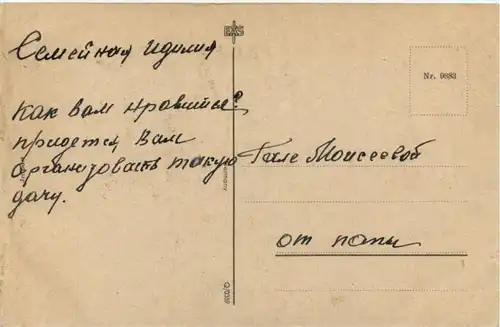 Семейная идилия
Как вам нравится?
придется Вам
организовать такую
дачу.
EAS
Nr. 9883
Гале Моисеевой
от папы
Germany
Q/0359